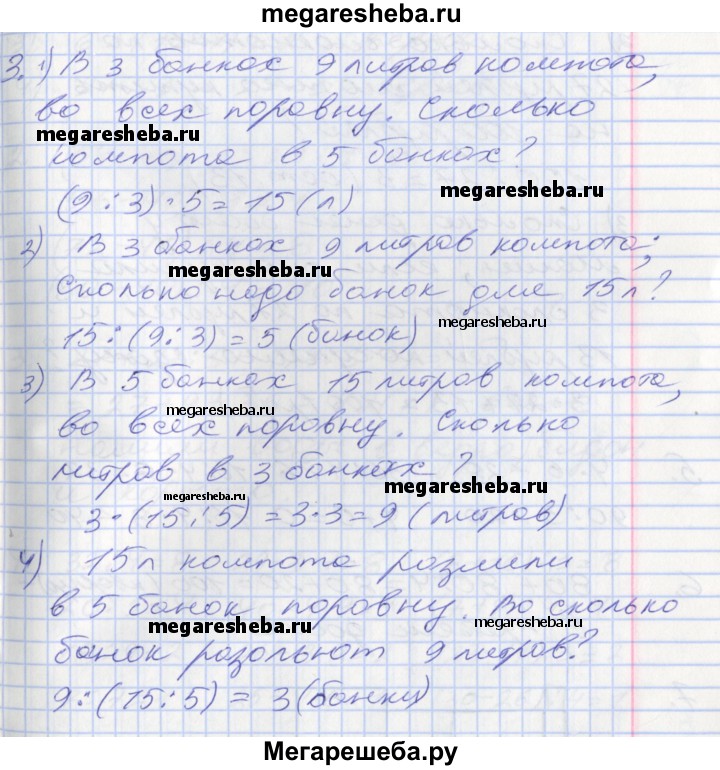 megaresheba.ru
3. 1) В 3 банках 9 литров компота,
во всех поровну. Сколько
megaresheba.ru
компота в 5 банках?
megaresheba.ru
(9 : 3) · 5 = 15 (л)
2) В 3 банках 9 литров компота;
megaresheba.ru
Сколько надо банок для 15 л?
megaresheba.ru
15 : (9 : 3) = 5 (банок)
3) В 5 банках 15 литров компота,
megaresheba.ru
во всех поровну. Сколько
литров в 3 банках?
megaresheba.ru
megaresheba.ru
3 · (15 : 5) = 3 · 3 = 9 (литров)
4) 15 л компота разлили
в 5 банок поровну. Во сколько
megaresheba.ru
megaresheba.ru
банок разольют 9 литров?
9 : (15 : 5) = 3 (банки)
Мегарешеба.ру